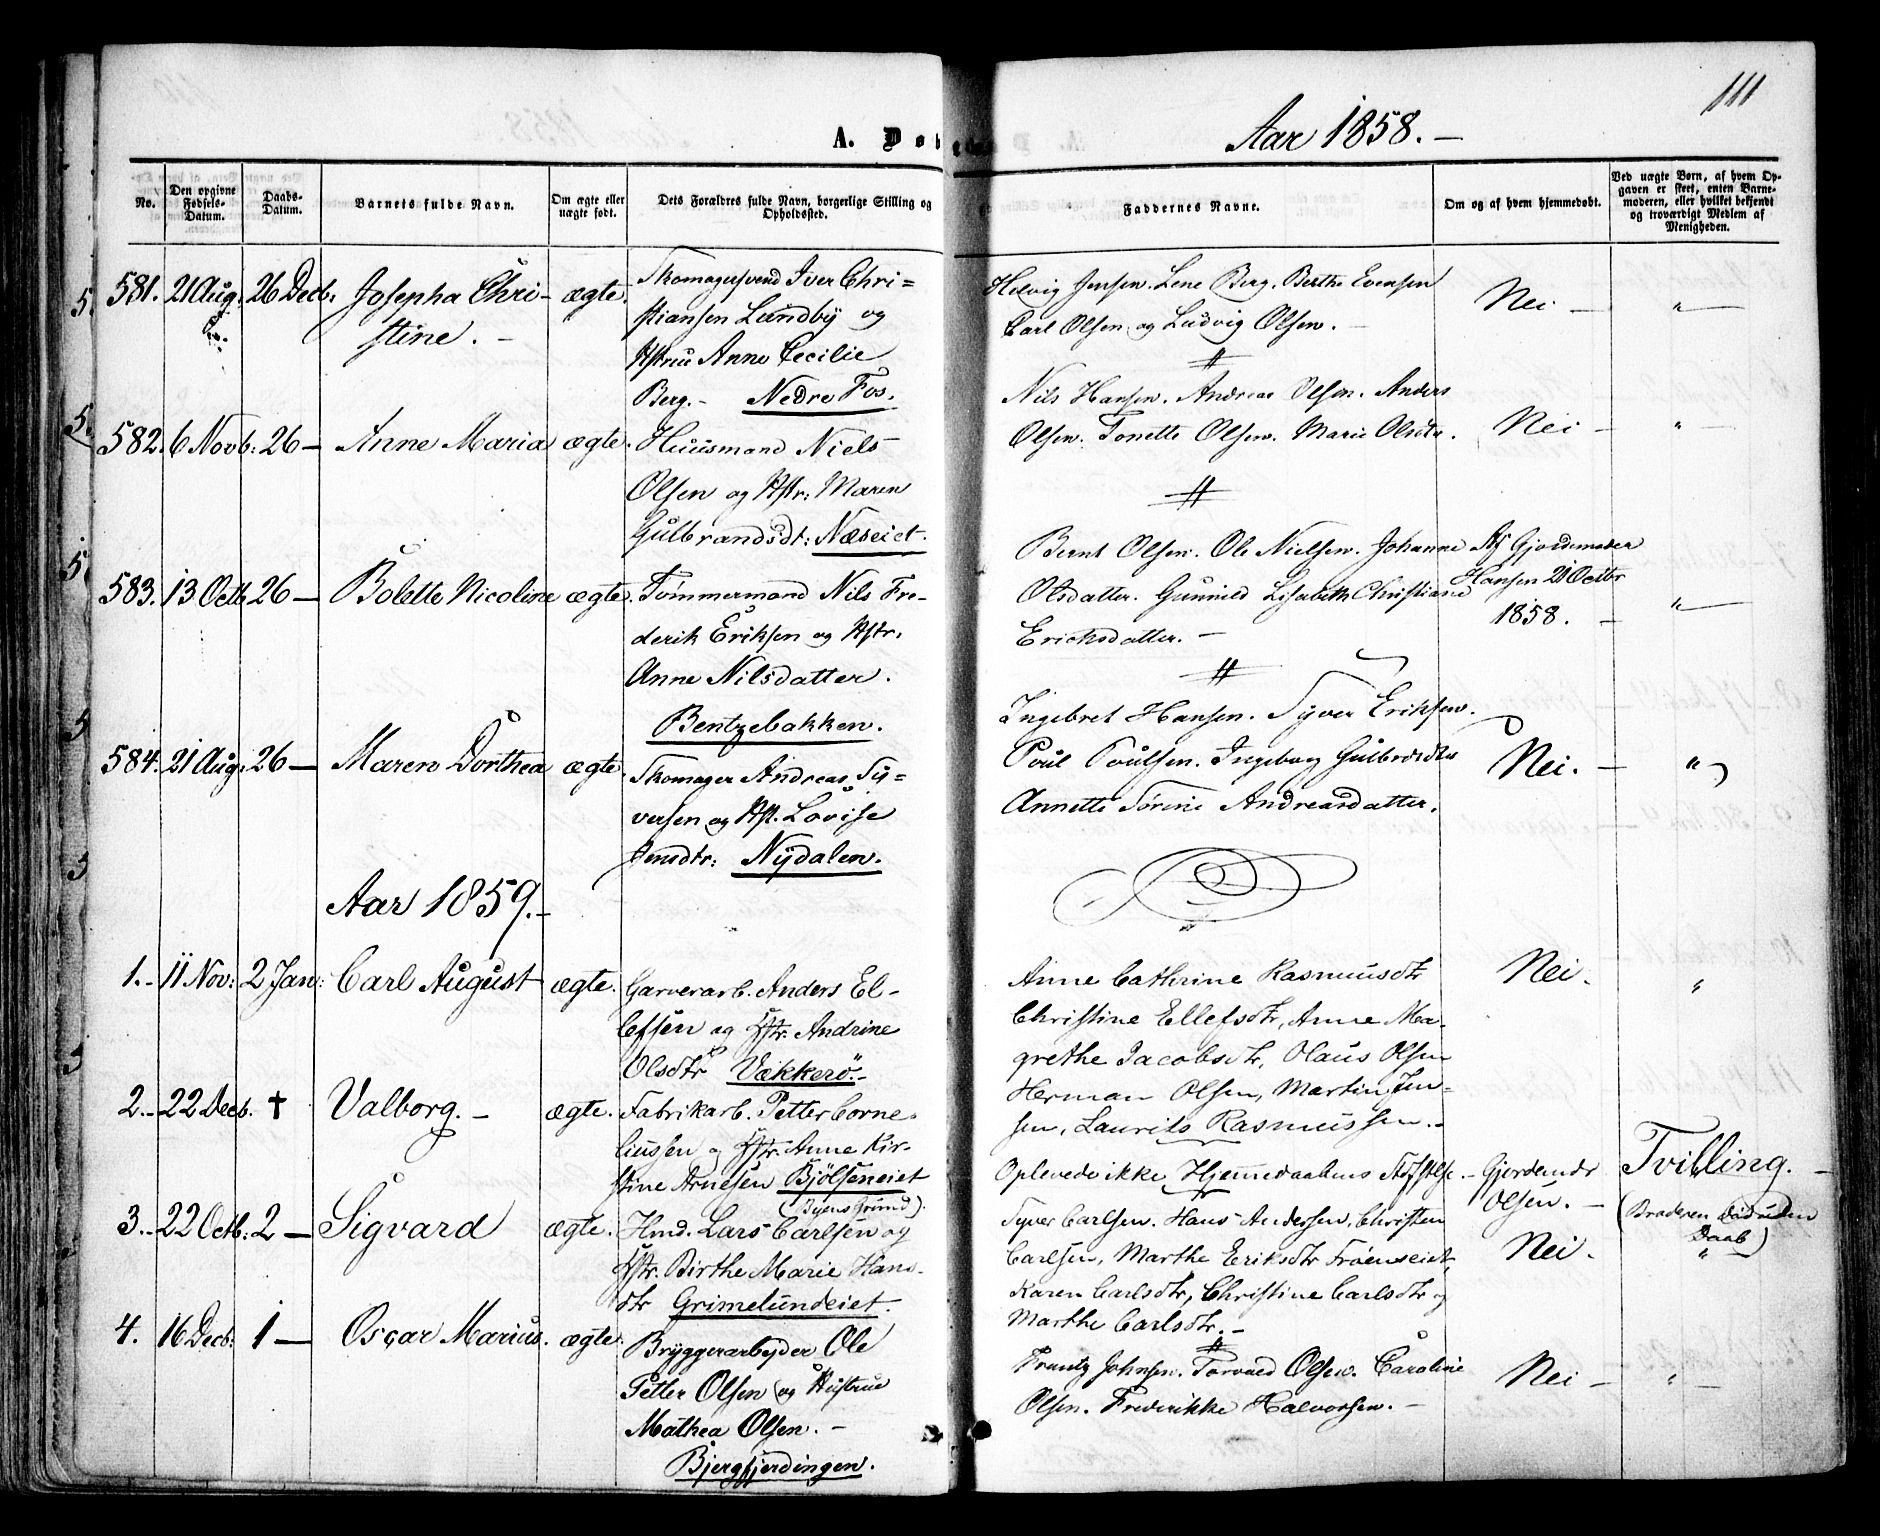 111
A. Døbte
Aar 1858.
No.
Den opgivne Fødsels-Datum.
Daabs-Datum.
Barnets fulde Navn.
Om ægte eller uægte født.
Dets Forældres fulde Navn, borgerlige Stilling og Opholdssted.
Faddernes Navne.
Om og af hvem hjemmedøbt.
Ved uægte Børn, af hvem Opgaven er skeet, enten Barnemoderen, eller hvilket bekjendt og troværdigt Medlem af Menigheden.
581. 21 Aug. 26 Decb: Josepha Chri- ægte. Skomagersvend Iver Chri=
stine. stiansen Lundby og
Hstru Anne Cecilie
Berg. Nedre Fos.
Helvig Jensen. Lene Berg. Berthe Evensen
Carl Olsen og Ludvig Olsen.
Nei — "
582. 6 Novb: 26 — Anne Maria ægte. Huusmand Niels
Olsen og Hstr: Maren
Gulbrandsdt: Næseiet.
Nils Hansen. Andreas Olsen. Anders
Olsen. Tonette Olsen. Marie Olsdtr.
Nei — "
583. 13 Octb 26 — Bolette Nicoline ægte. Tømmermand Nils Fre-
derik Eriksen og Hstr.
Anne Nilsdatter.
Bentzebakken.
Bernt Olsen. Ole Nielsen. Johanne
Olsdatter. Gunild Lisabeth Christiane
Ericksdatter. —
Af Gjordemoder
Hansen 21 Octbr
1858. — "
584. 21 Aug. 26 — Maren Dorthea ægte. Skomager Andreas Sy=
versen og Hst. Lovise
Jensdtr: Nydalen.
Ingebret Hansen. Syver Eriksen.
Poul Poulsen. Ingeborg Gulbrdsdtr
Annette Sørine Andreasdatter.
Nei. — "
Aar 1859.
1. 11 Nov: 2 Jan: Carl August ægte. Garverarb. Anders El-
lefsen og Hstr. Andrine
Olsdtr Vækkerö.
Anne Cathrine Rasmusdtr
Christine Ellefsdtr, Anne Ma-
grethe Jacobsdtr, Olaus Olsen
Herman Olsen, Martin Jen-
sen, Laurits Rasmussen.
Nei. "
2. 22 Decb. † Valborg. — ægte. Fabrikarb. Petter Corne-
liussen og Hstr. Anne Kir-
stine Arnesen Bjölseneiet
(Byens Grund).
Oplevede ikke Hjemmedaabens
Gjordemdr
Olsen. —
Tvilling. —
(Broderen død uden
Daab)
3. 22 Octb: 2 — Sigvard ægte. Hmd. Lars Carlsen og
Hstr. Birthe Marie Hans-
dtr Grimelundeiet.
Syver Carlsen. Hans Andersen, Christen
Carlsen, Marthe Eriksdtr Frøenseiet,
Karen Carlsdtr, Christine Carlsdtr og
Marthe Carlsdtr.
Nei. "
4. 16 Decb: 1 — Oscar Marius. ægte. Bryggerarbejder Ole
Petter Olsen og Hustrue
Mathea Olsen. —
Bjergfjerdingen.
Frantz Johnsen. Torvald Olsen. Caroline
Olsen. Frederikke Halvorsen. —
Nei — "